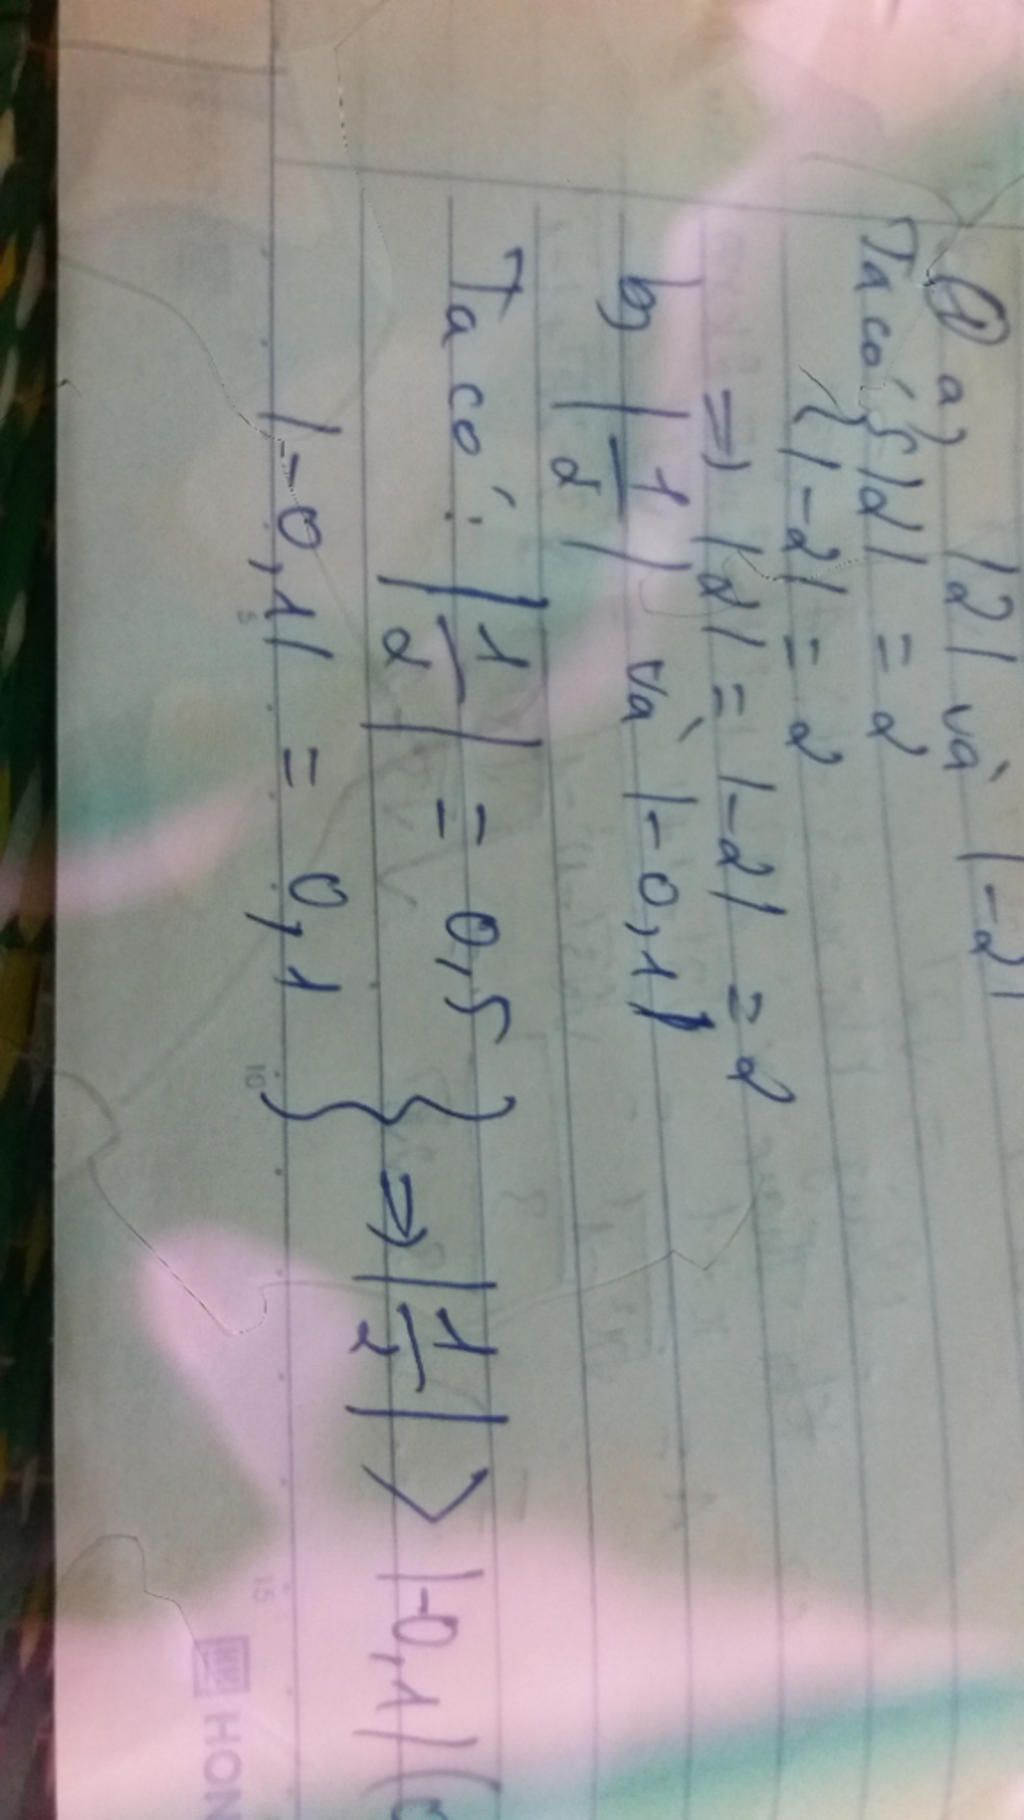 ① a) |2| và |-2|
Ta có { |2| = 2
{ |-2| = 2
=> |2| = |-2| = 2
b) |1/2| và |-0,1|
Ta có: |1/2| = 0,5
|-0,1| = 0,1 } => |1/2| > |-0,1| (
5 10 15
HON